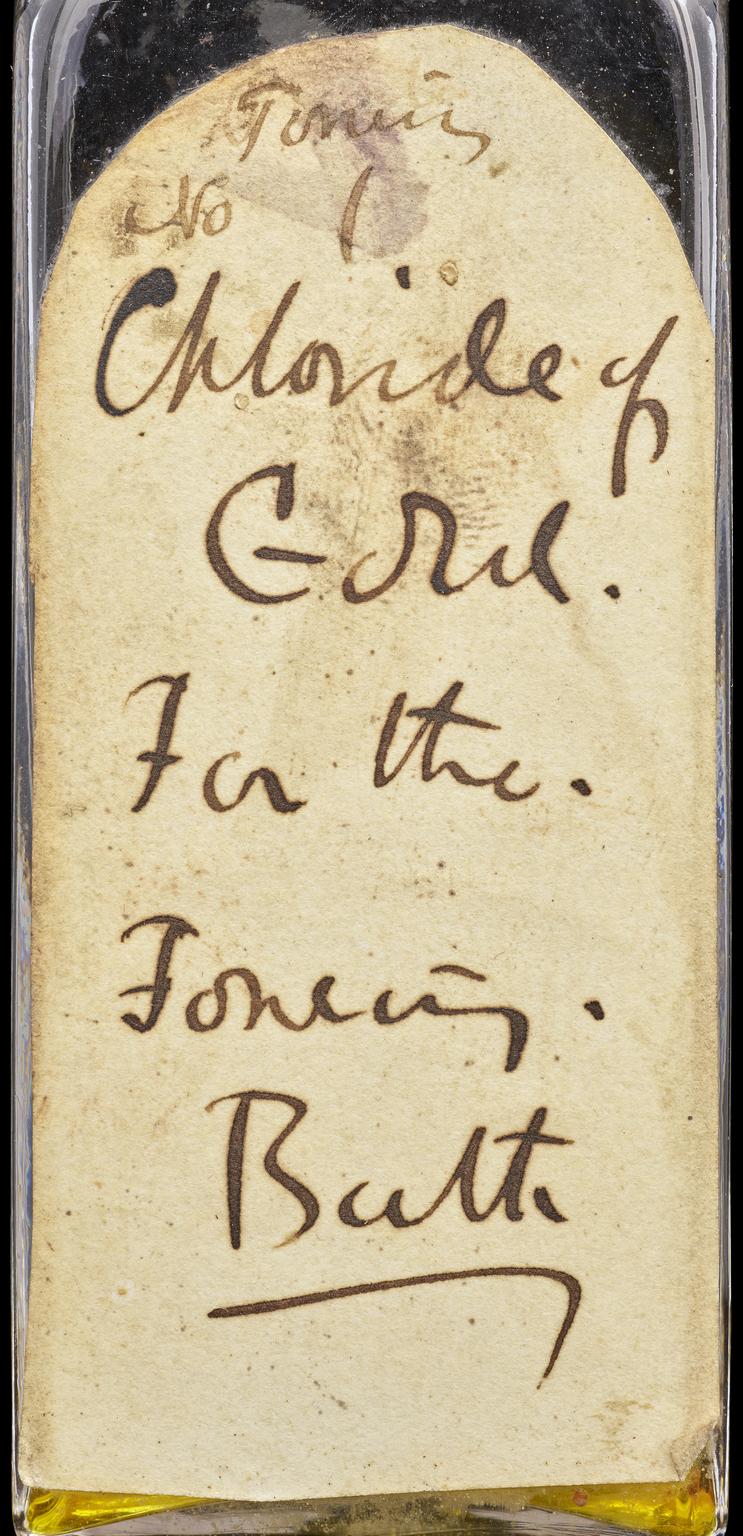 Toning
No 1
Chloride of
Gold.
For the.
Toning.
Bath